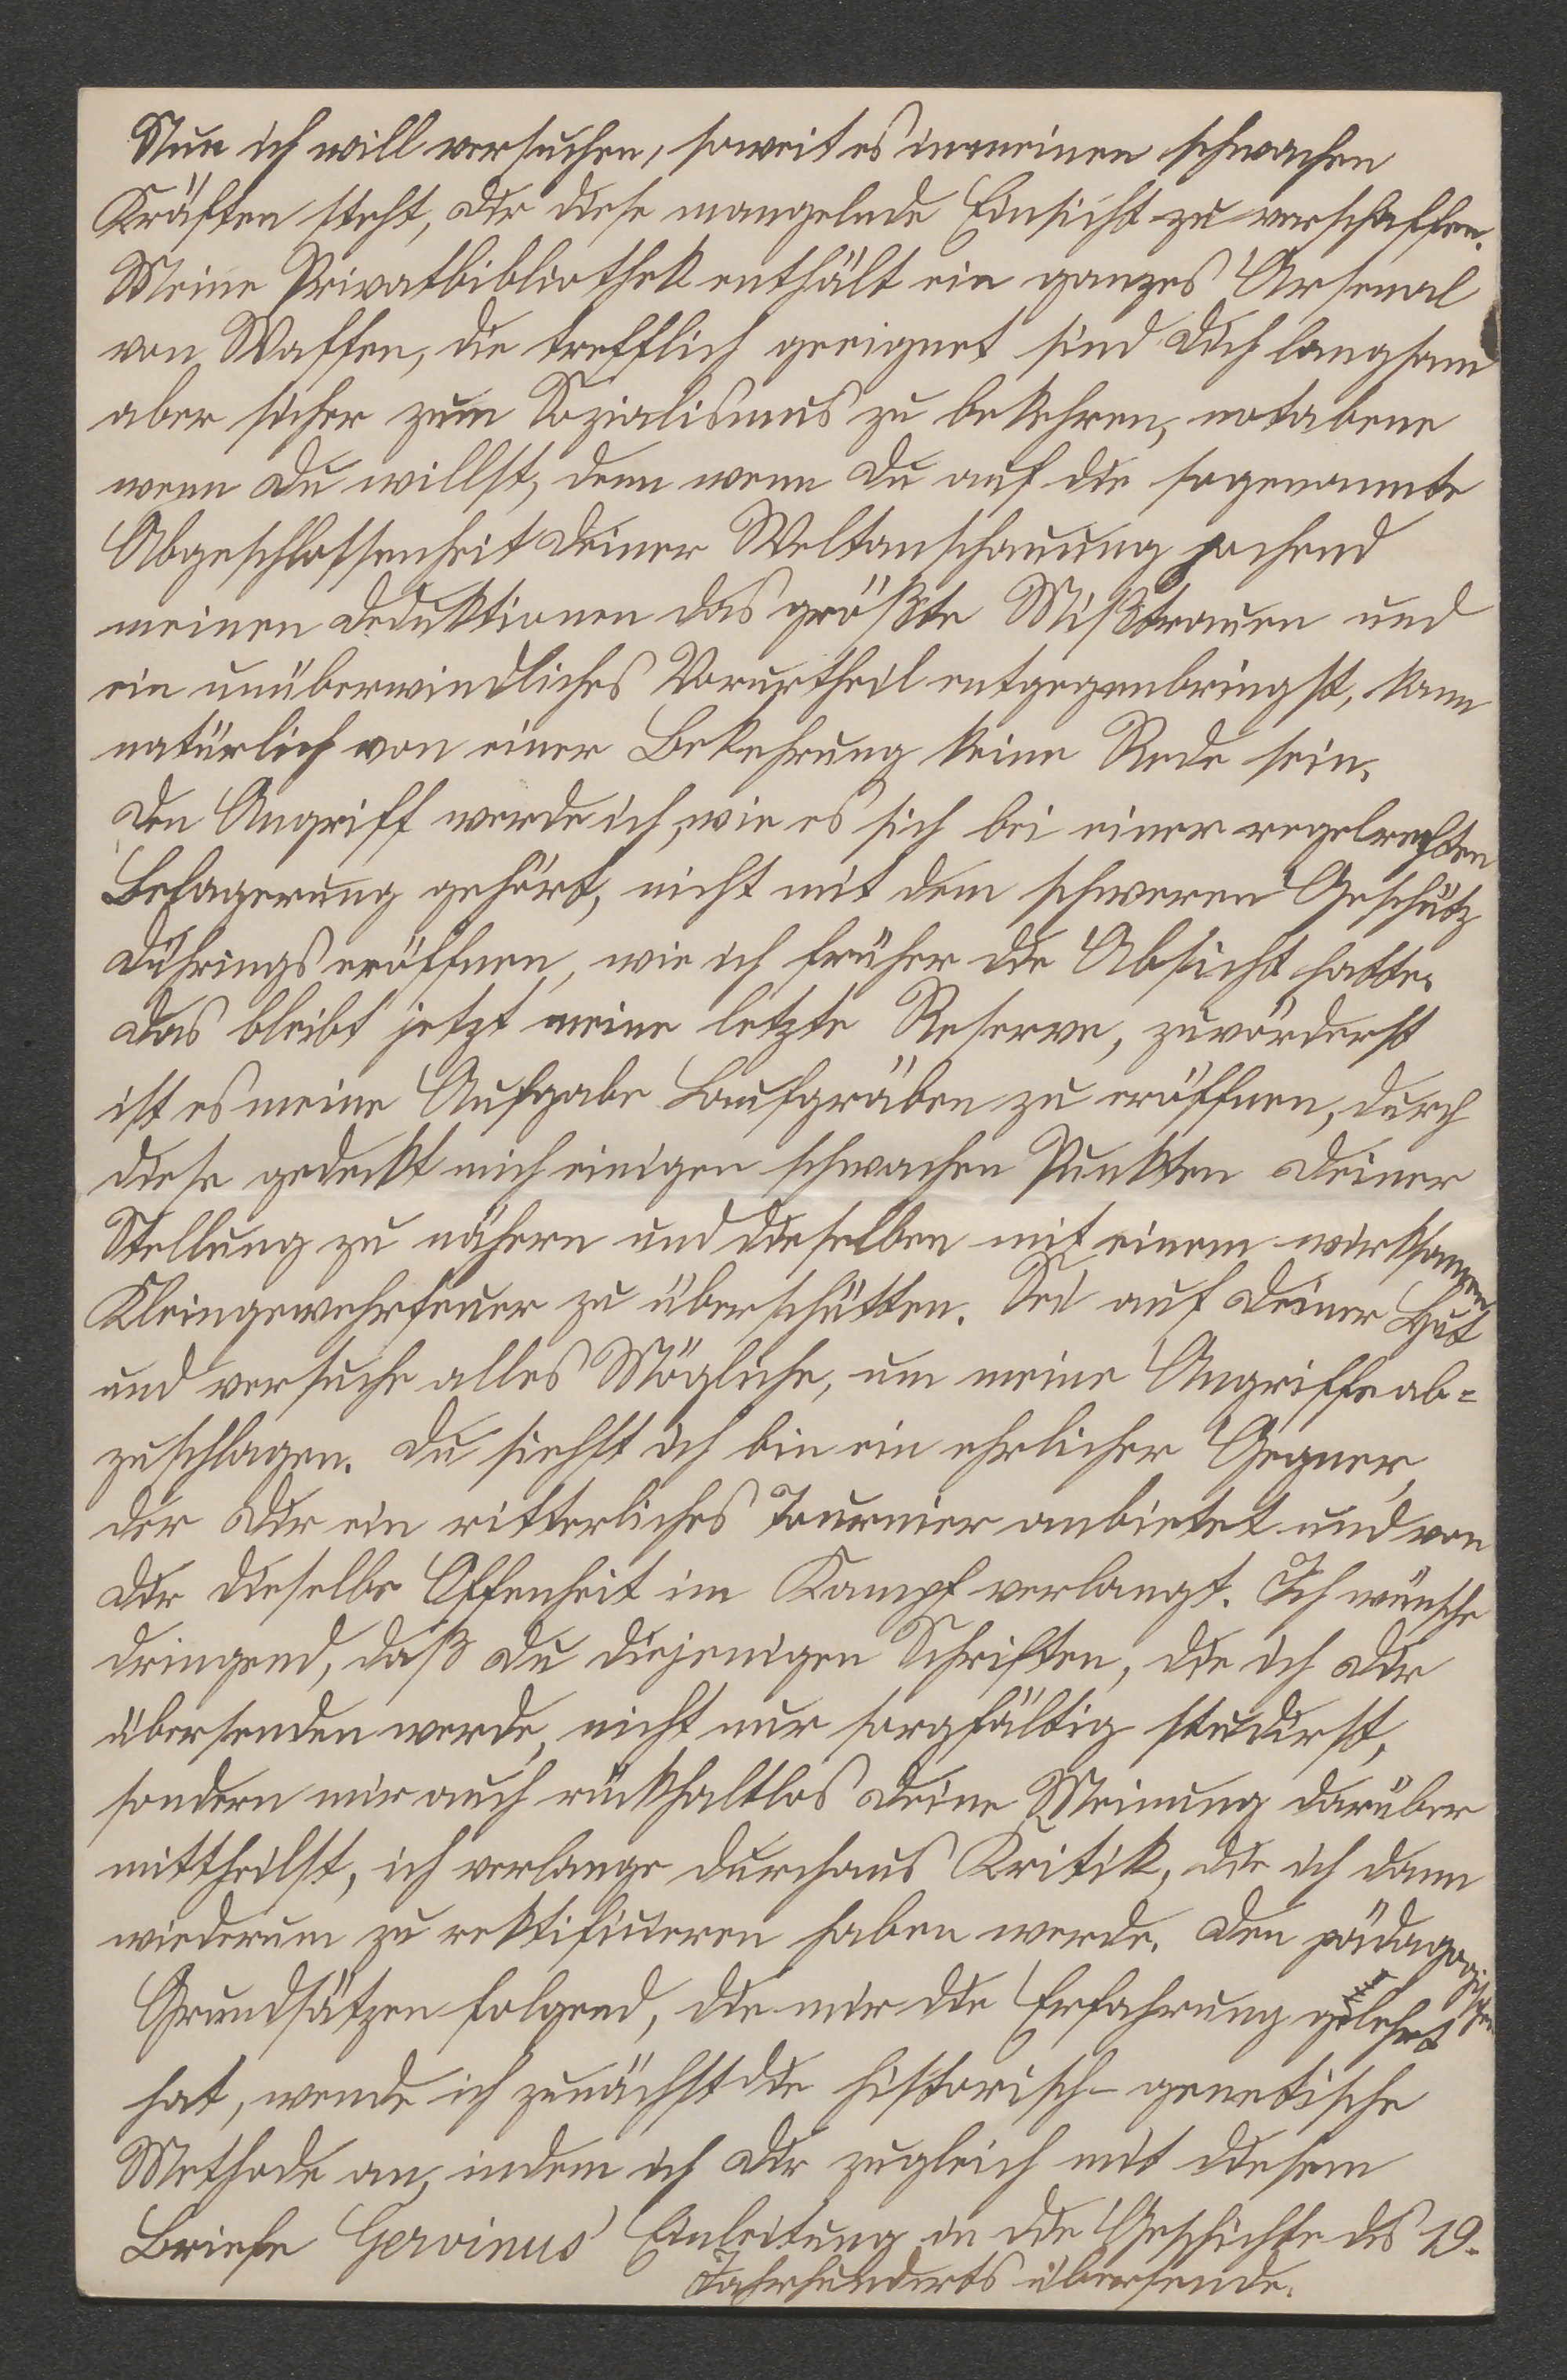 Nun ich will versuchen, soweit es in meinen schwachen
Kräften steht, Dir diese mangelnde Einsicht zu verschaffen.
Meine Privatbibliothek enthält ein ganzes Arsenal
von Waffen, die trefflich geeignet sind Dich langsam
aber sicher zum Sozialismus zu bekehren, notabene
wenn Du willst, denn wenn Du auf die sogenannte
Abgeschlossenheit Deiner Weltanschauung pochend
meinen Deduktionen das größte Mißtrauen und
ein unüberwindliches Vorurtheil entgegenbringst, kann
natürlich von einer Bekehrung keine Rede sein.
Den Angriff werde ich, wie es sich bei einer regelrechten
Belagerung gehört, nicht mit dem schweren Geschütz
Dührings eröffnen, wie ich früher die Absicht hatte.
Das bleibt jetzt meine letzte Reserve, zuvörderst
ist es meine Aufgabe Laufgräben zu eröffnen, durch
diese gedeckt mich einigen schwachen Punkten Deiner
Stellung zu nähern und dieselben mit einem wirksamen
Kleingewehrfeuer zu überschütten. Sei auf Deiner Hut
und versuche alles Mögliche, um meine Angriffe ab-
zuschlagen. Du siehst ich bin ein ehrlicher Gegner,
der Dir ein ritterliches Tournier anbietet und von
Dir dieselbe Offenheit im Kampf verlangt. Ich wünsche
dringend, daß Du diejenigen Schriften, die ich Dir
übersenden werde, nicht nur sorgfältig studirst,
sondern mir auch rückhaltlos Deine Meinung darüber
mittheilst, ich verlange durchaus Kritik, die ich dann
wiederum zu rektifizieren haben werde. Den pädagogischen
Grundsätzen folgend, die mir die Erfahrung gelehrt
hat, wende ich zunächst die historisch-genetische
Methode an, indem ich Dir zugleich mit diesem
Briefe Gervinus' Einleitung in die Geschichte des 19.
Jahrhunderts übersende.